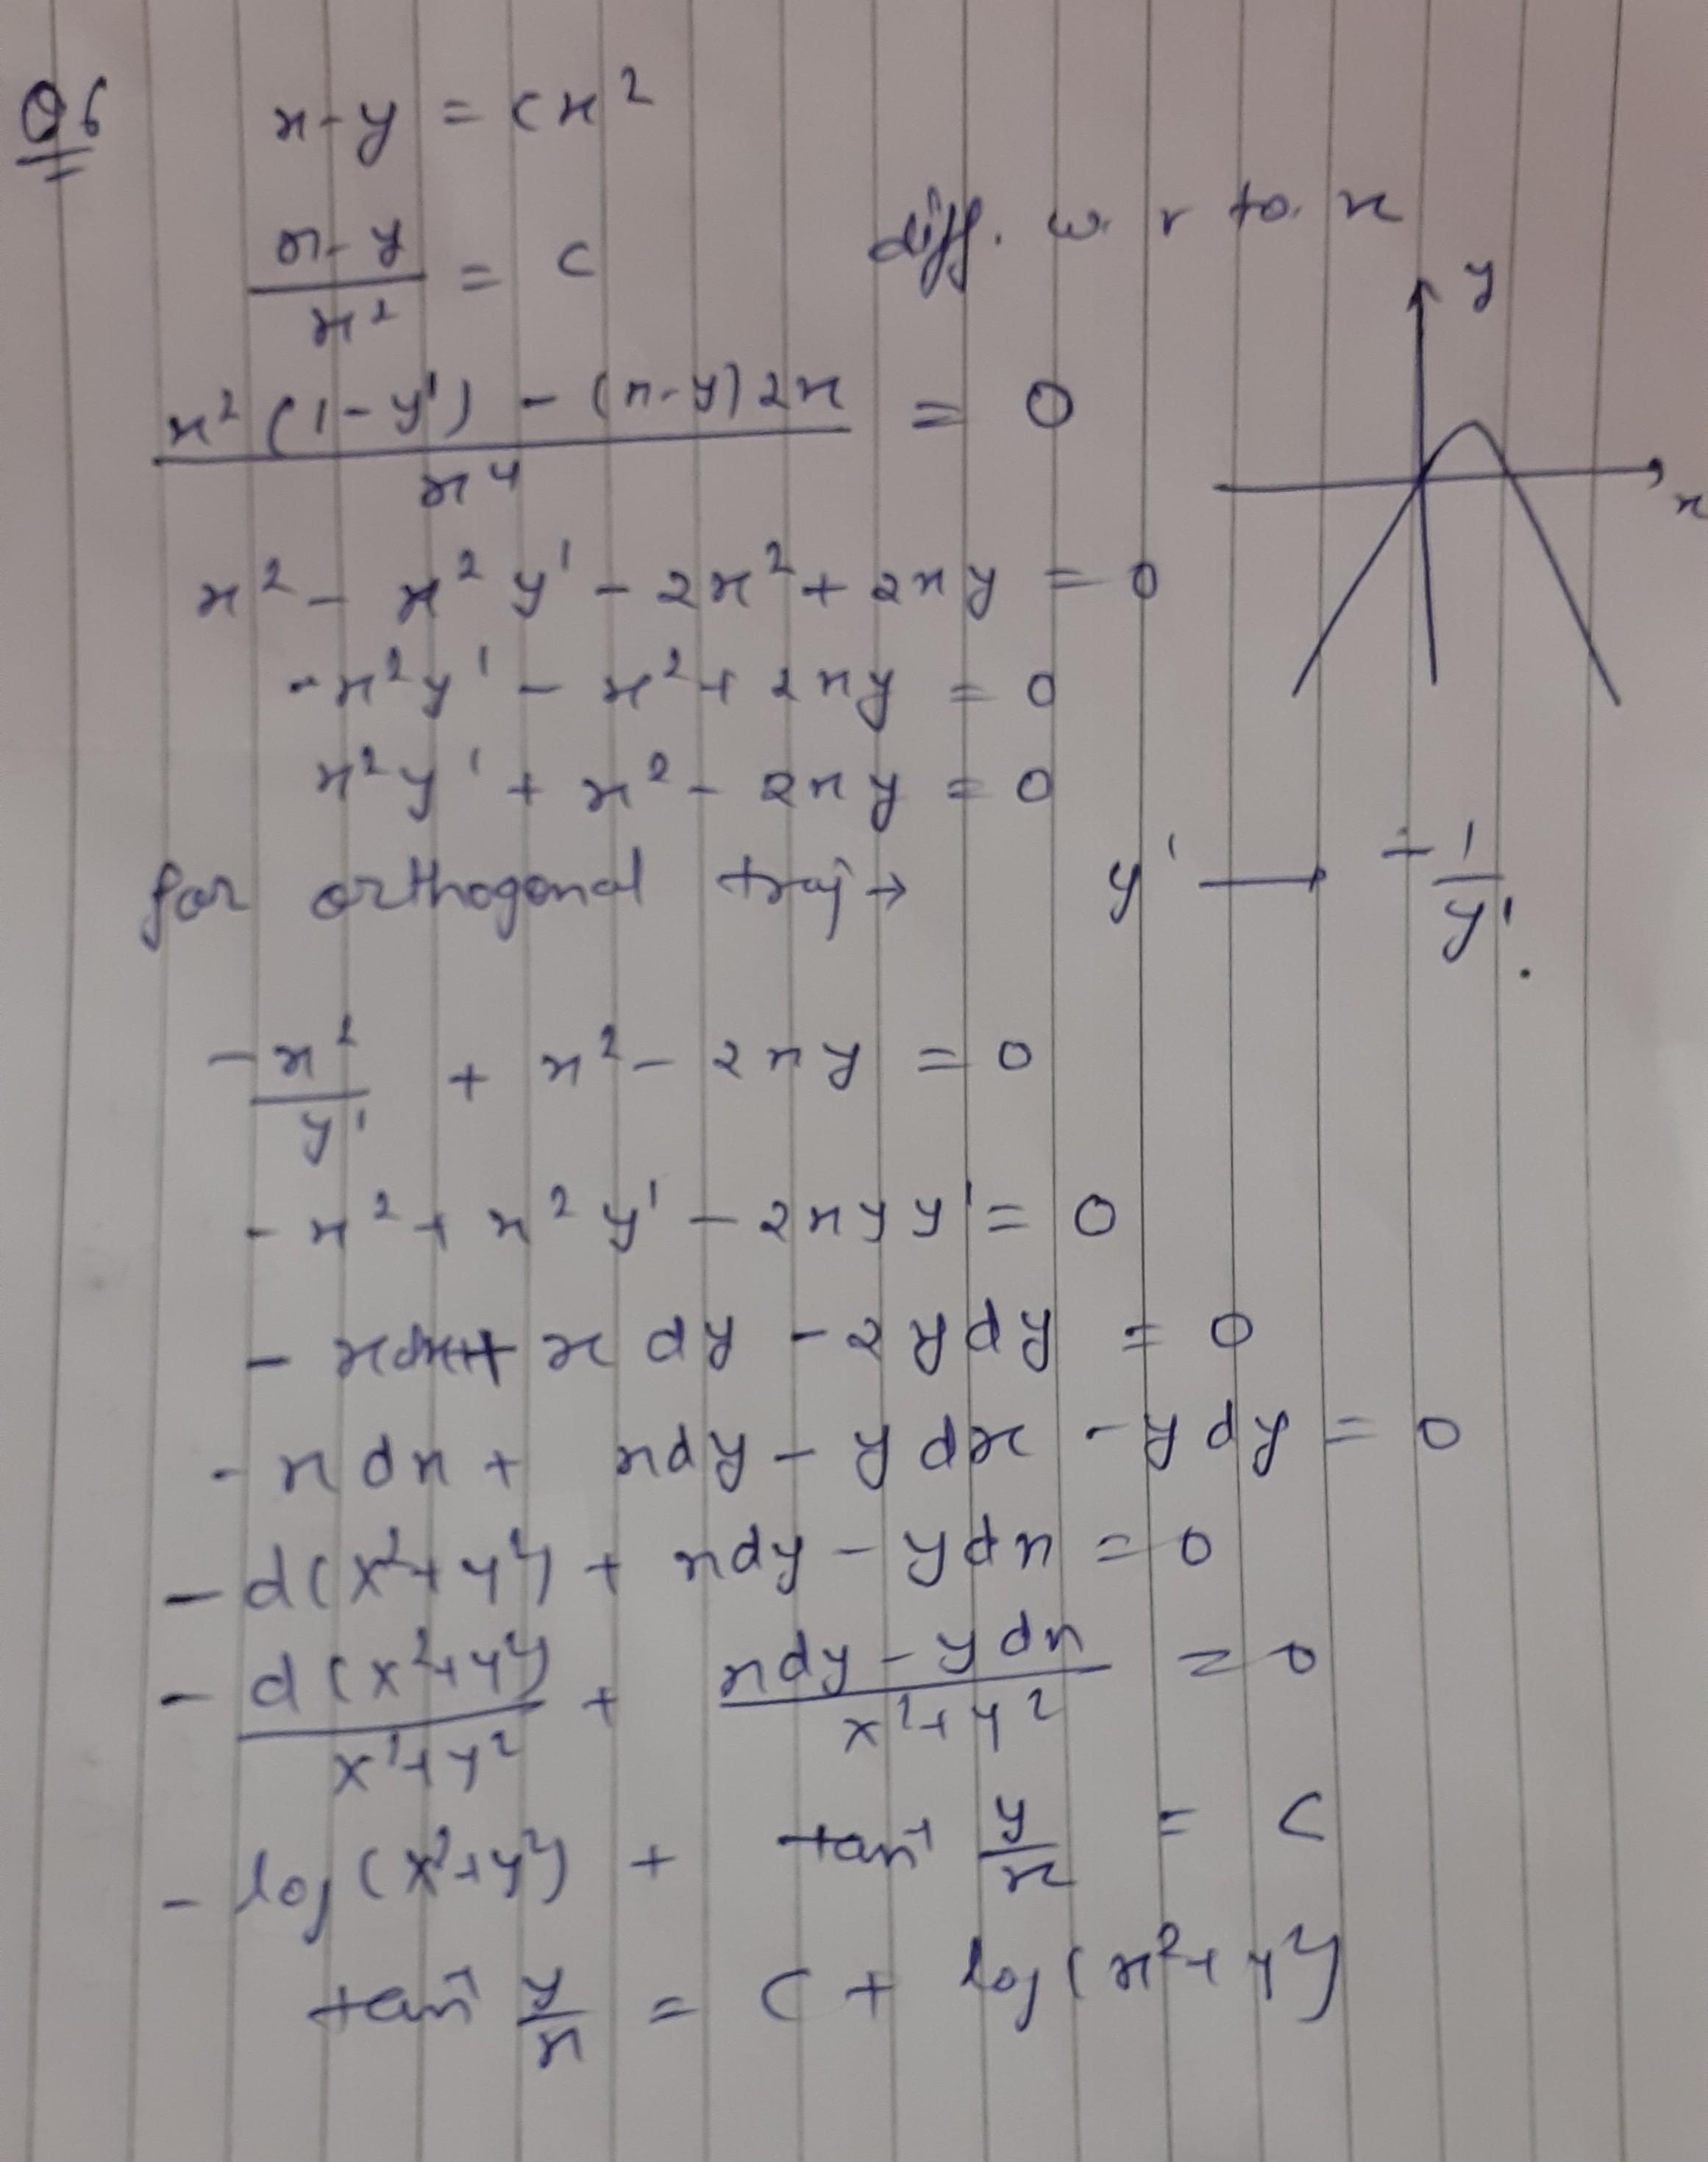 Q6 x-y = cx²
x-y/x² = c diff. w. r to. x
x²(1-y') - (x-y)2x / x⁴ = 0
y
x
x² - x²y' - 2x² + 2xy = 0
-x²y' - x² + 2xy = 0
x²y' + x² - 2xy = 0
for orthogonal traj → y' → -1/y'.
-x²/y' + x² - 2xy = 0
-x² + x²y' - 2xyy' = 0
- xdx + x dy - 2ydy = 0
- xdx + xdy - ydx - ydy = 0
- d(x²+y²) + xdy - ydx = 0
- d(x²+y²)/x²+y² + xdy - ydx/x²+y² = 0
- log(x²+y²) + tan⁻¹ y/x = c
tan⁻¹ y/x = c + log(x²+y²)